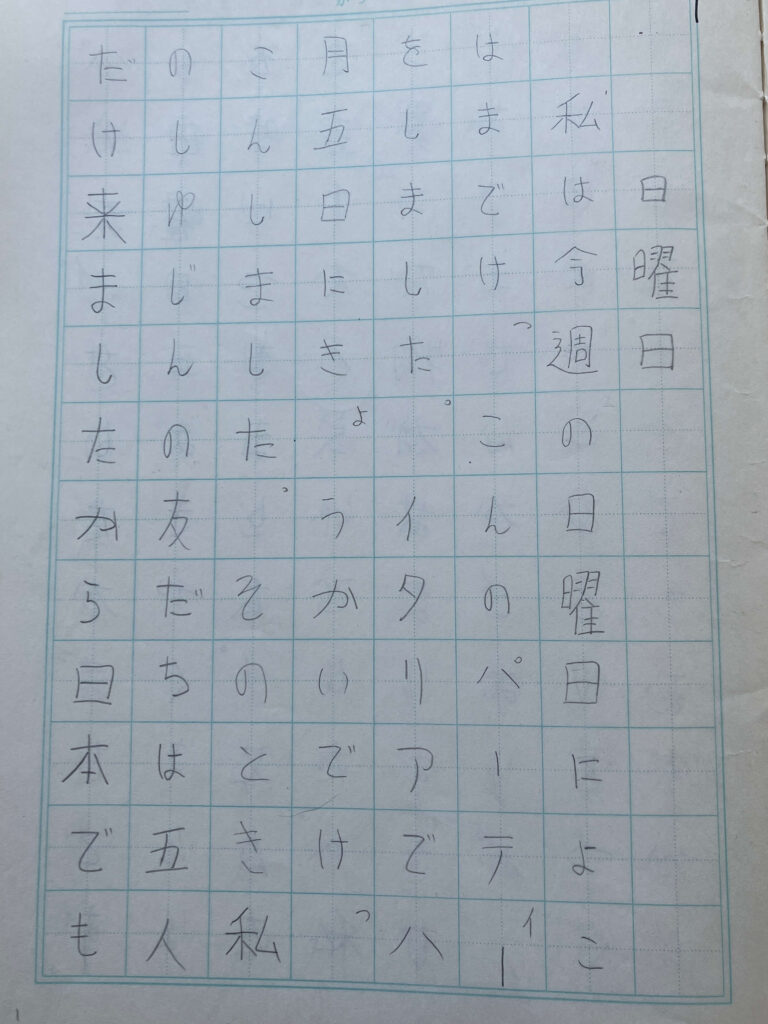 日曜日
私は今週の日曜日によこ
はまでけっこんのパーティー
をしました。イタリアで八
月五日にきょうかいでけっ
こんしました。そのとき私
のしゆじんの友だちは五人
だけ来ましたから日本でも